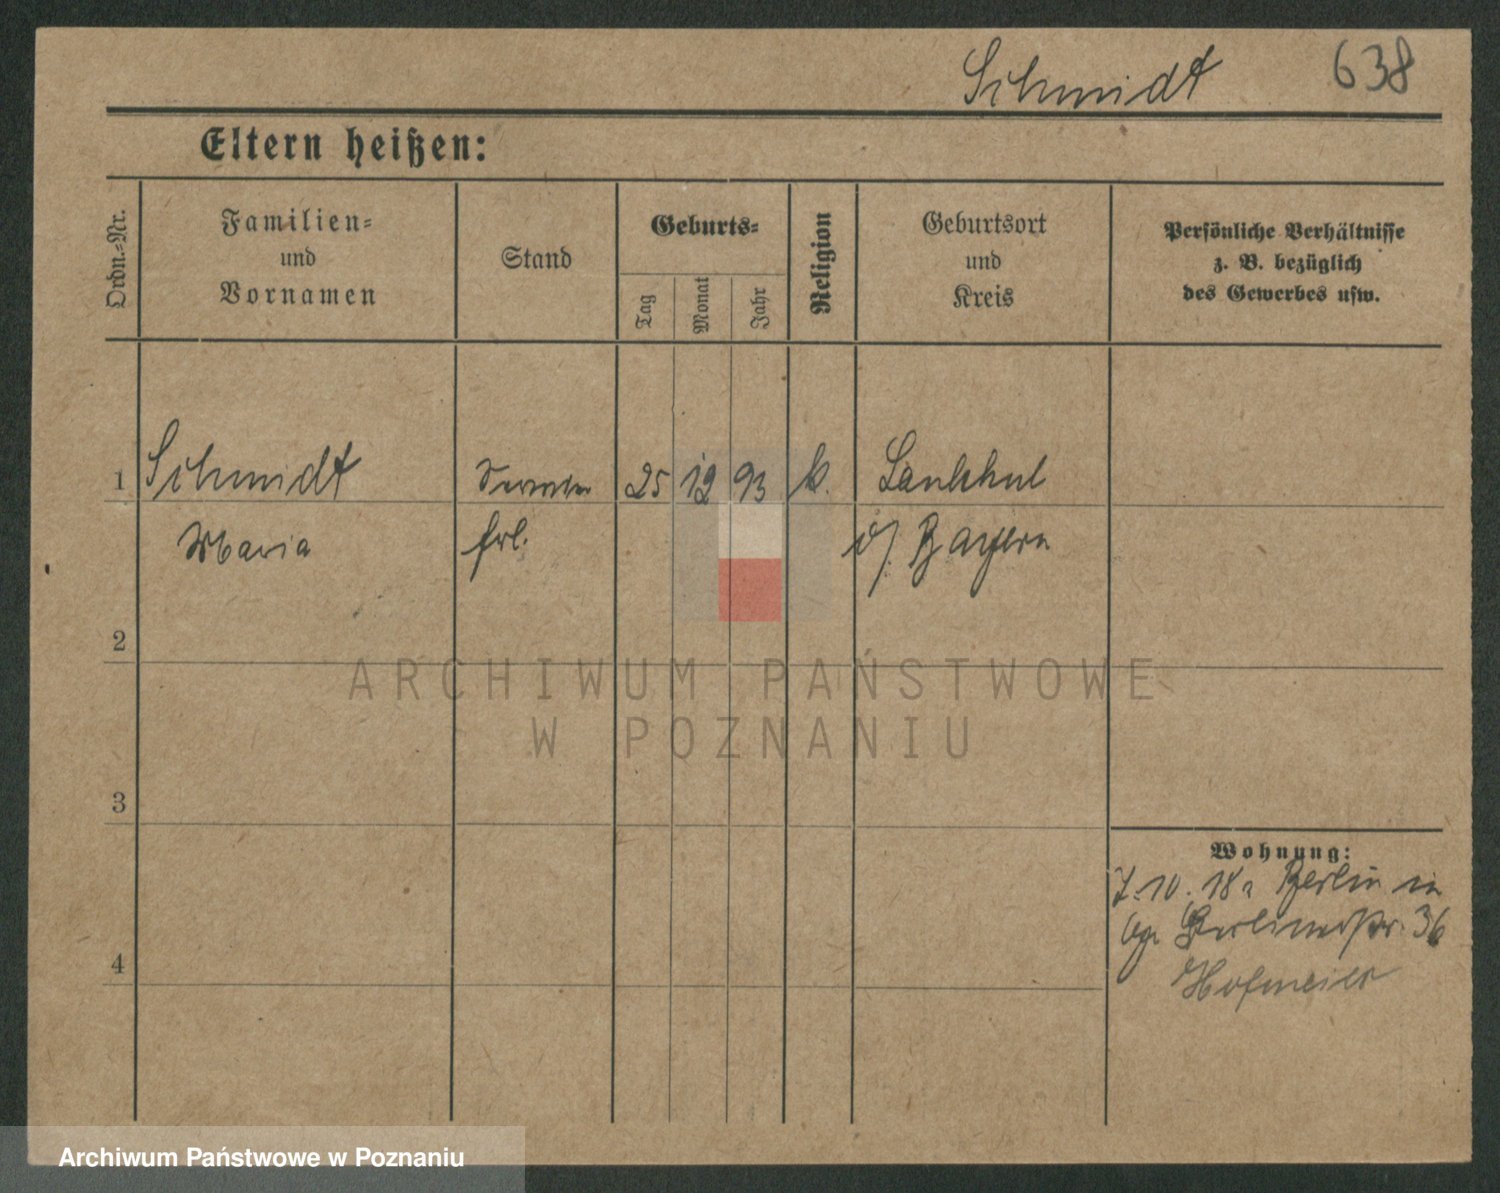 Schmidt 638
Eltern heißen:
Ordn.-Nr.
Familien-
und
Vornamen
Stand
Geburts-
Tag
Monat
Jahr
Religion
Geburtsort
und
Kreis
Persönliche Verhältnisse
z. B. bezüglich
des Gewerbes usw.
1 Schmidt 25 12 93 k.
Maria frl. Bayern
2
3
4
Wohnung:
7.10.18 a Berlin in
Berlinerstr. 36
Hofmeier
ARCHIWUM PAŃSTWOWE
W POZNANIU
Archiwum Państwowe w Poznaniu